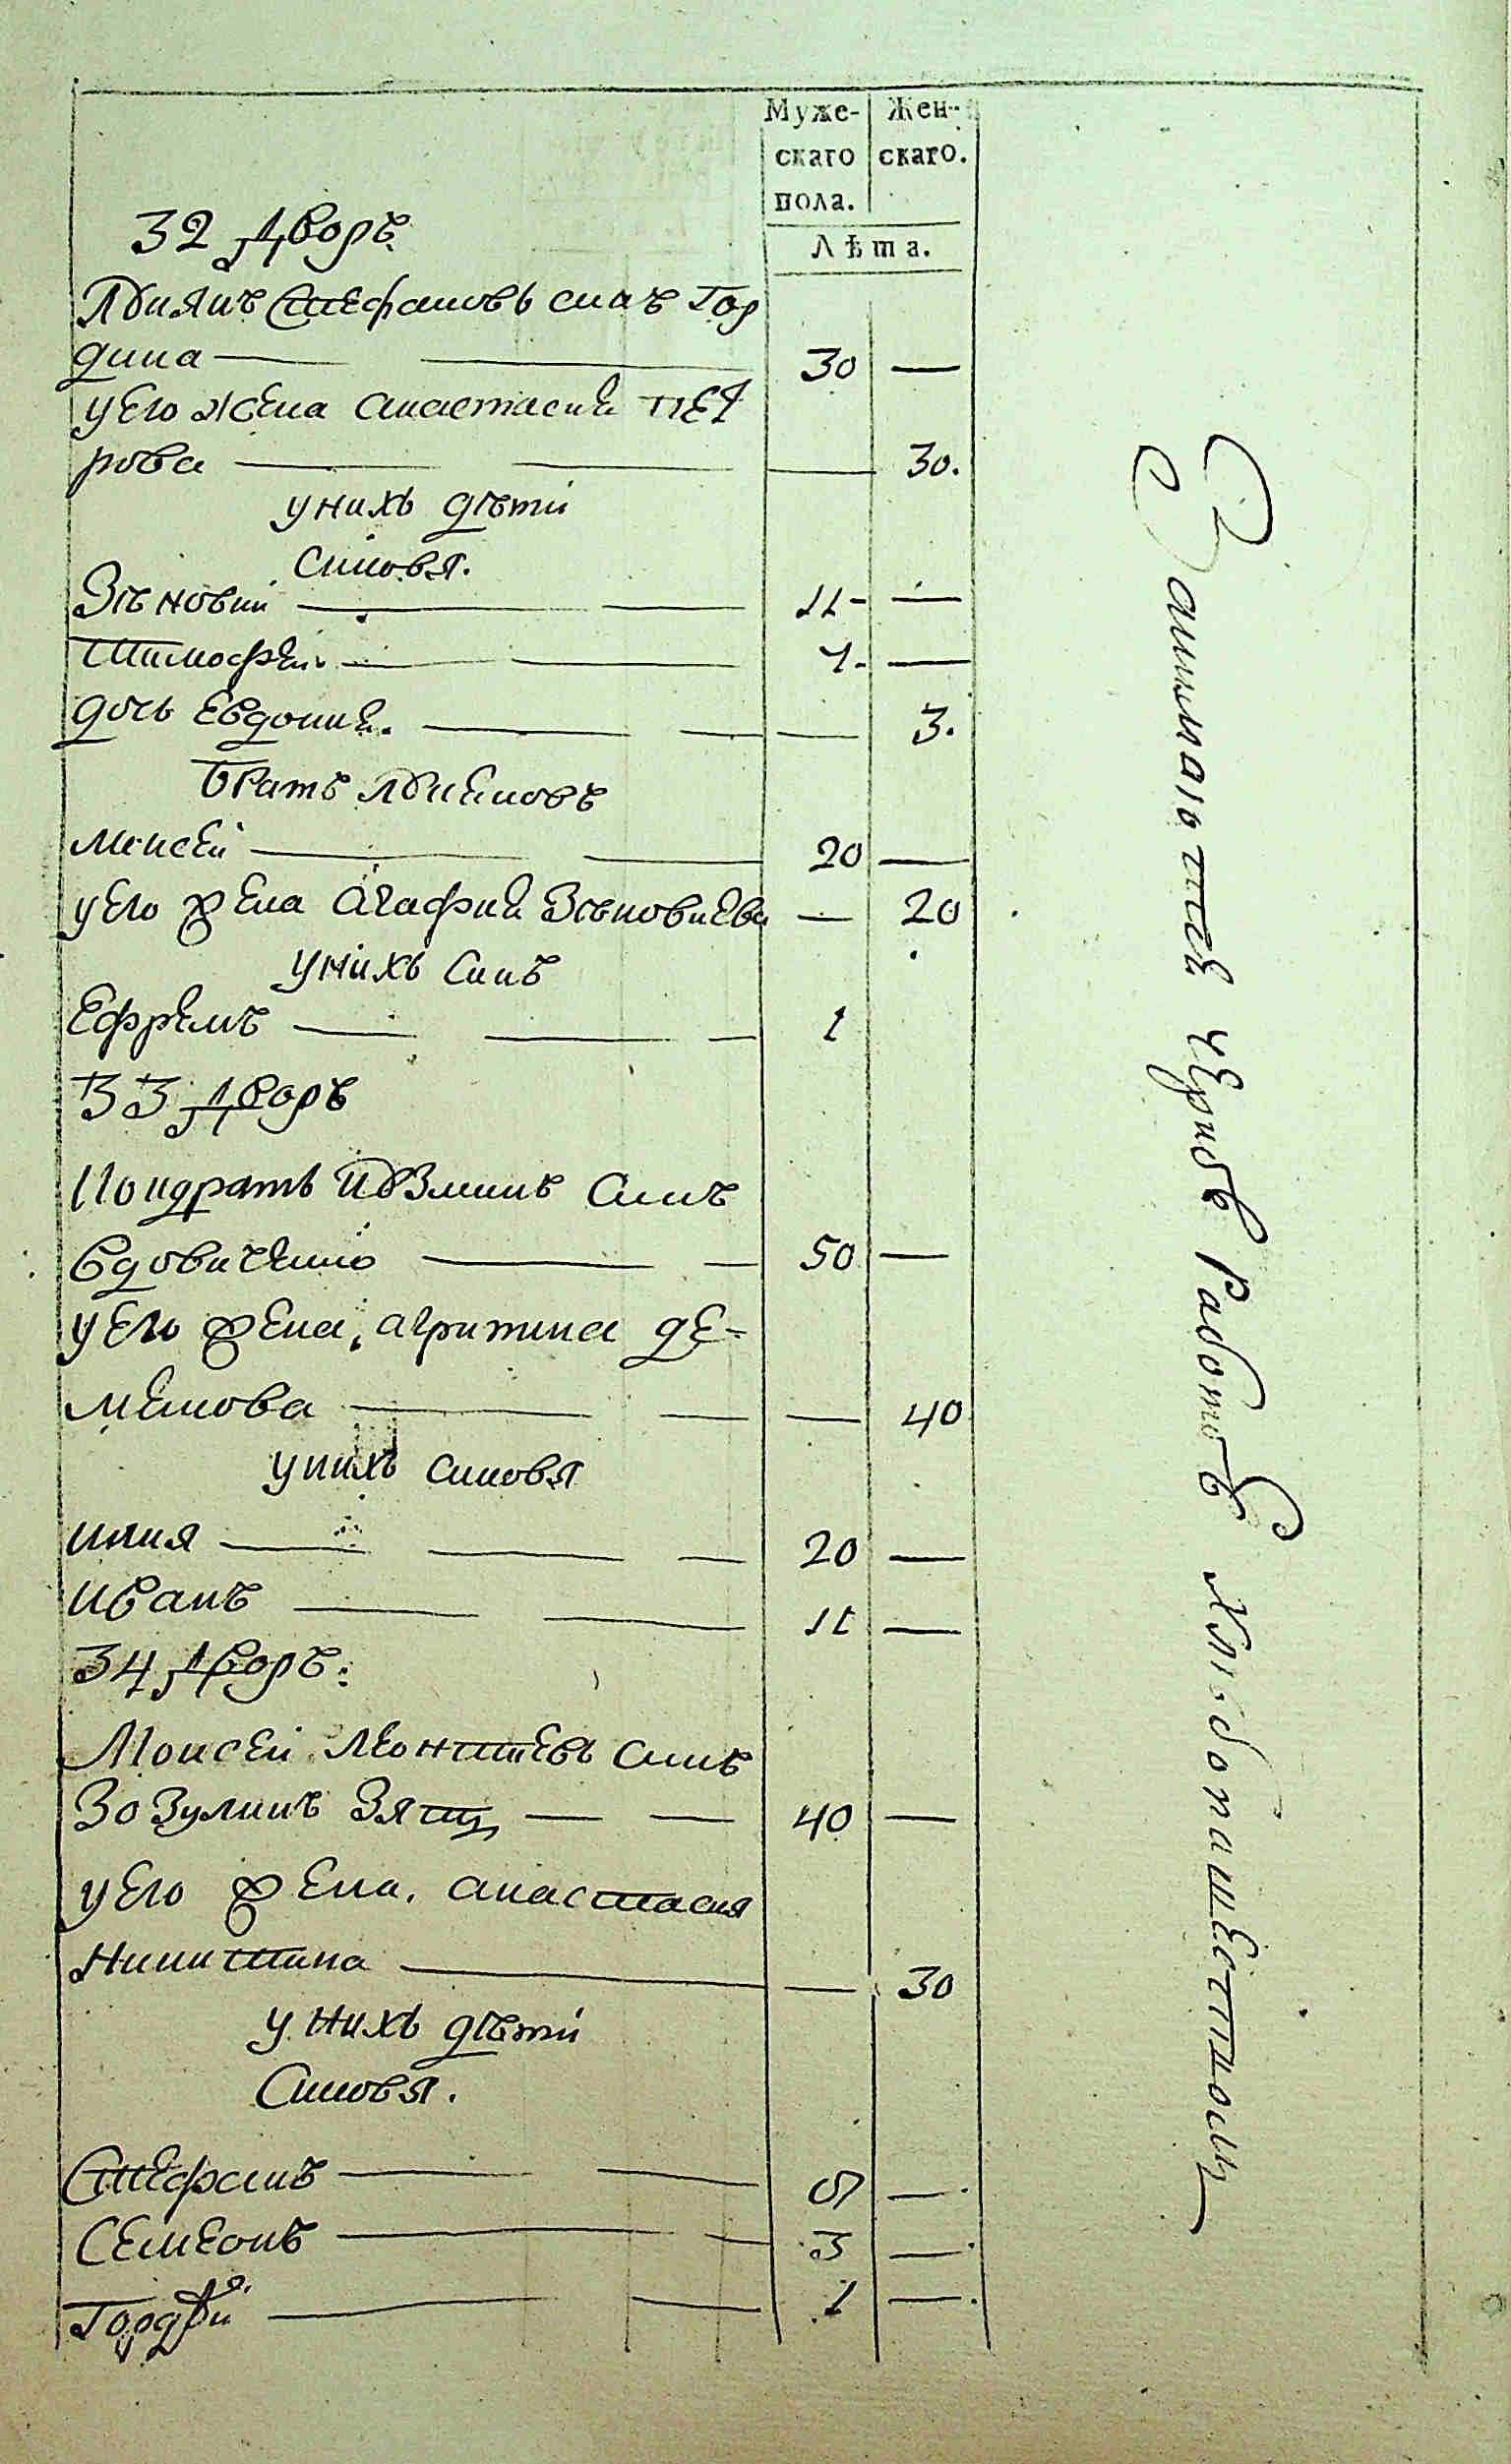 Муже- Жен-
скаго скаго.
пола.
Лѣта.
32 Дворъ
Юлиянъ Стефановъ синъ Гор
дина 30 —
у его жена анастасия Пет
рова — 30.
у нихъ дѣти
синовя.
Зѣновий 11 —
Тимофей 7. —
дочь Евдокия. — 3.
Братъ
Моисей 20 —
у его жена агафия Зѣновиева — 20
у нихъ синъ
Ефремъ 1
33 Дворъ
Кондратъ синъ
Вдовиченко 50 —
у его жена, агрипина де-
менова — 40
у нихъ синовя
илия 20 —
иванъ 11 —
34 Дворъ.
Моисей Леонтиевъ синъ
Зозулинъ Зять 40 —
у его жена, анастасия
Никитина — 30
у нихъ дѣти
Синовя.
Стефанъ 5 —
Семеонъ 3 —
Гордѣй 1 —
Занимаются работою хлѣбопашественною